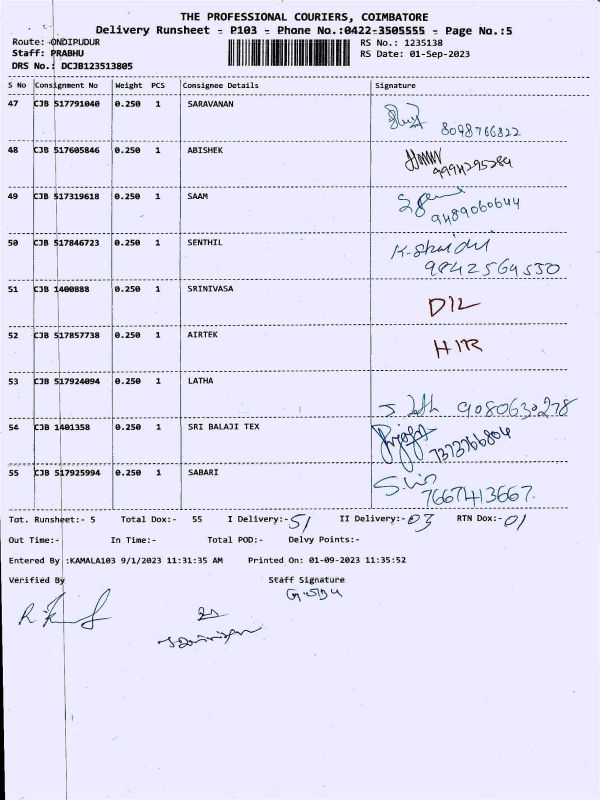 THE PROFESSIONAL COURIERS, COIMBATORE
Delivery Runsheet - P103 - Phone No.:0422-3505555 - Page No.:5
Route: -ONDIPUDUR RS No.: 1235138
Staff: PRABHU RS Date: 01-Sep-2023
DRS No.: DCJB123513805
S No Consignment No Weight PCS Consignee Details Signature
47 CJB 517791040 0.250 1 SARAVANAN
8098766822
48 CJB 517605846 0.250 1 ABISHEK
9994295284
49 CJB 517319618 0.250 1 SAAM
9489060644
50 CJB 517846723 0.250 1 SENTHIL
9842564550
51 CJB 1400888 0.250 1 SRINIVASA
D/L
52 CJB 517857738 0.250 1 AIRTEK
H/R
53 CJB 517924094 0.250 1 LATHA
9080630278
54 CJB 1401358 0.250 1 SRI BALAJI TEX
7373766804
55 CJB 517925994 0.250 1 SABARI
7667413667.
Tot. Runsheet:- 5 Total Dox:- 55 I Delivery:- 51 II Delivery:- 03 RTN Dox:- 01
Out Time:- In Time:- Total POD:- Delvy Points:-
Entered By :KAMALA103 9/1/2023 11:31:35 AM Printed On: 01-09-2023 11:35:52
Verified By Staff Signature